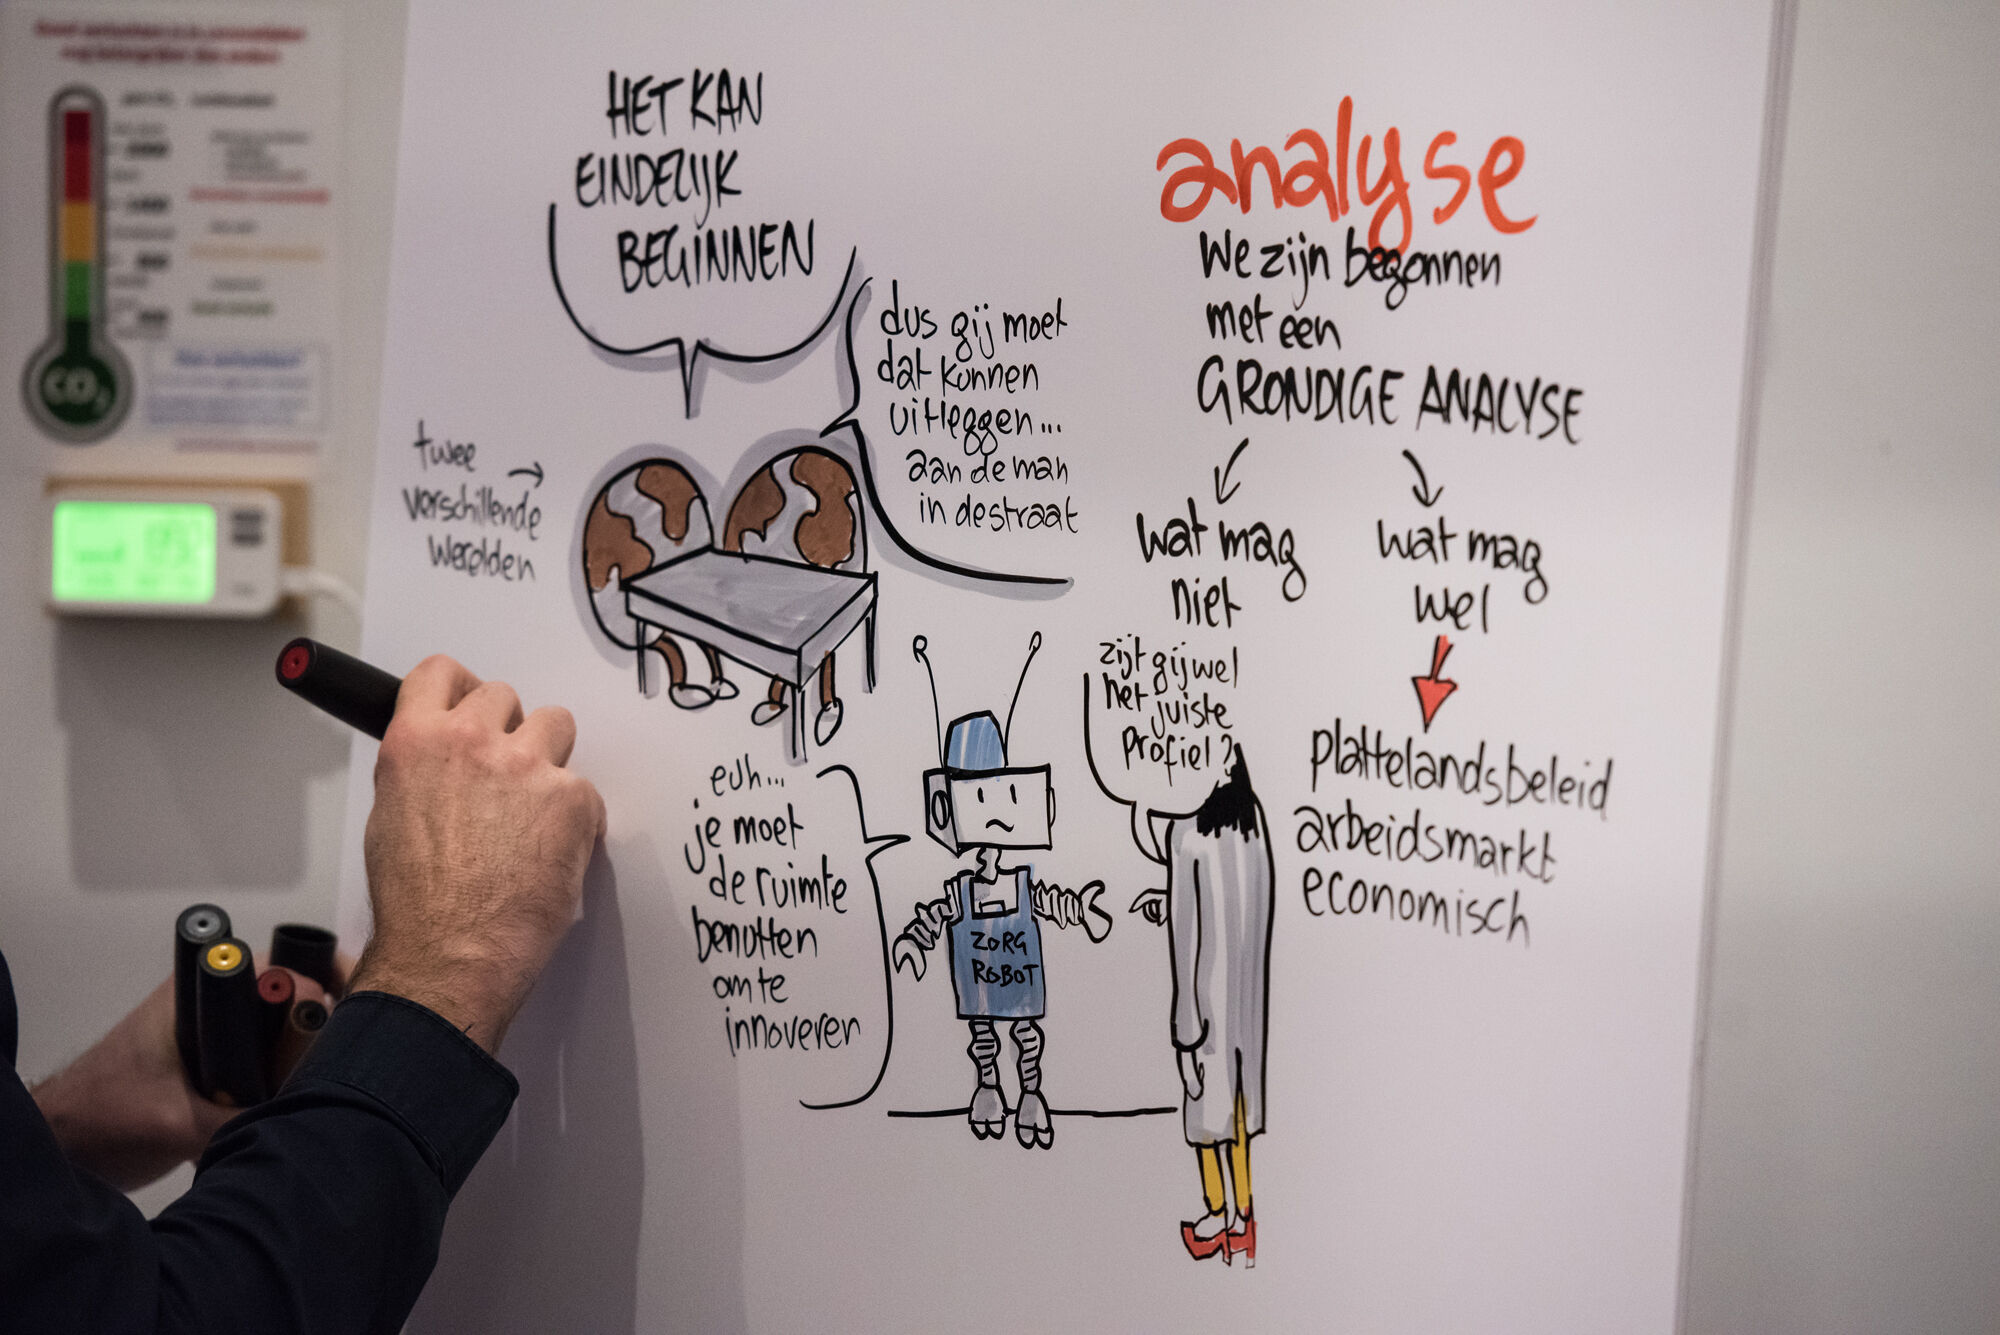 HET KAN
EINDELIJK
BEGINNEN
dus gij moet
dat kunnen
uitleggen...
aan de man
in de straat
twee
verschillende
werelden
euh...
je moet
de ruimte
benutten
om te
innoveren
ZORG
ROBOT
zijt gij wel
het juiste
profiel?
analyse
We zijn begonnen
met een
GRONDIGE ANALYSE
wat mag
niet
wat mag
wel
plattelandsbeleid
arbeidsmarkt
economisch
CO2